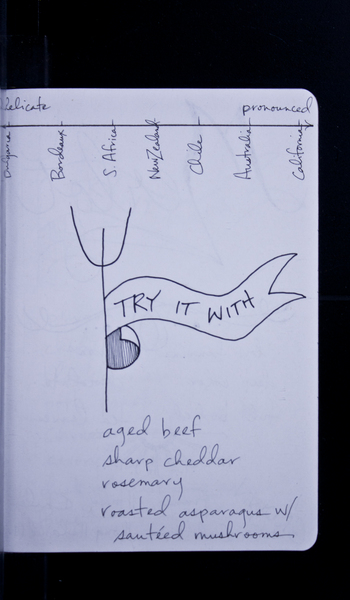 delicate pronounced
Bulgaria Bordeaux S. Africa New Zealand Chile Australia California
TRY IT WITH
aged beef
sharp cheddar
rosemary
roasted asparagus w/
sautéed mushrooms